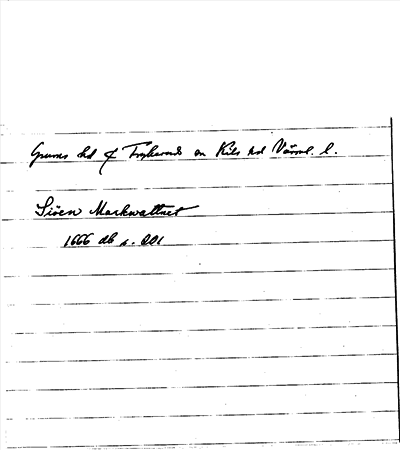 Grums hd f Frykerud sn Kils hd Värml. l.
Siöen Markwattnet
1666 db s. 201